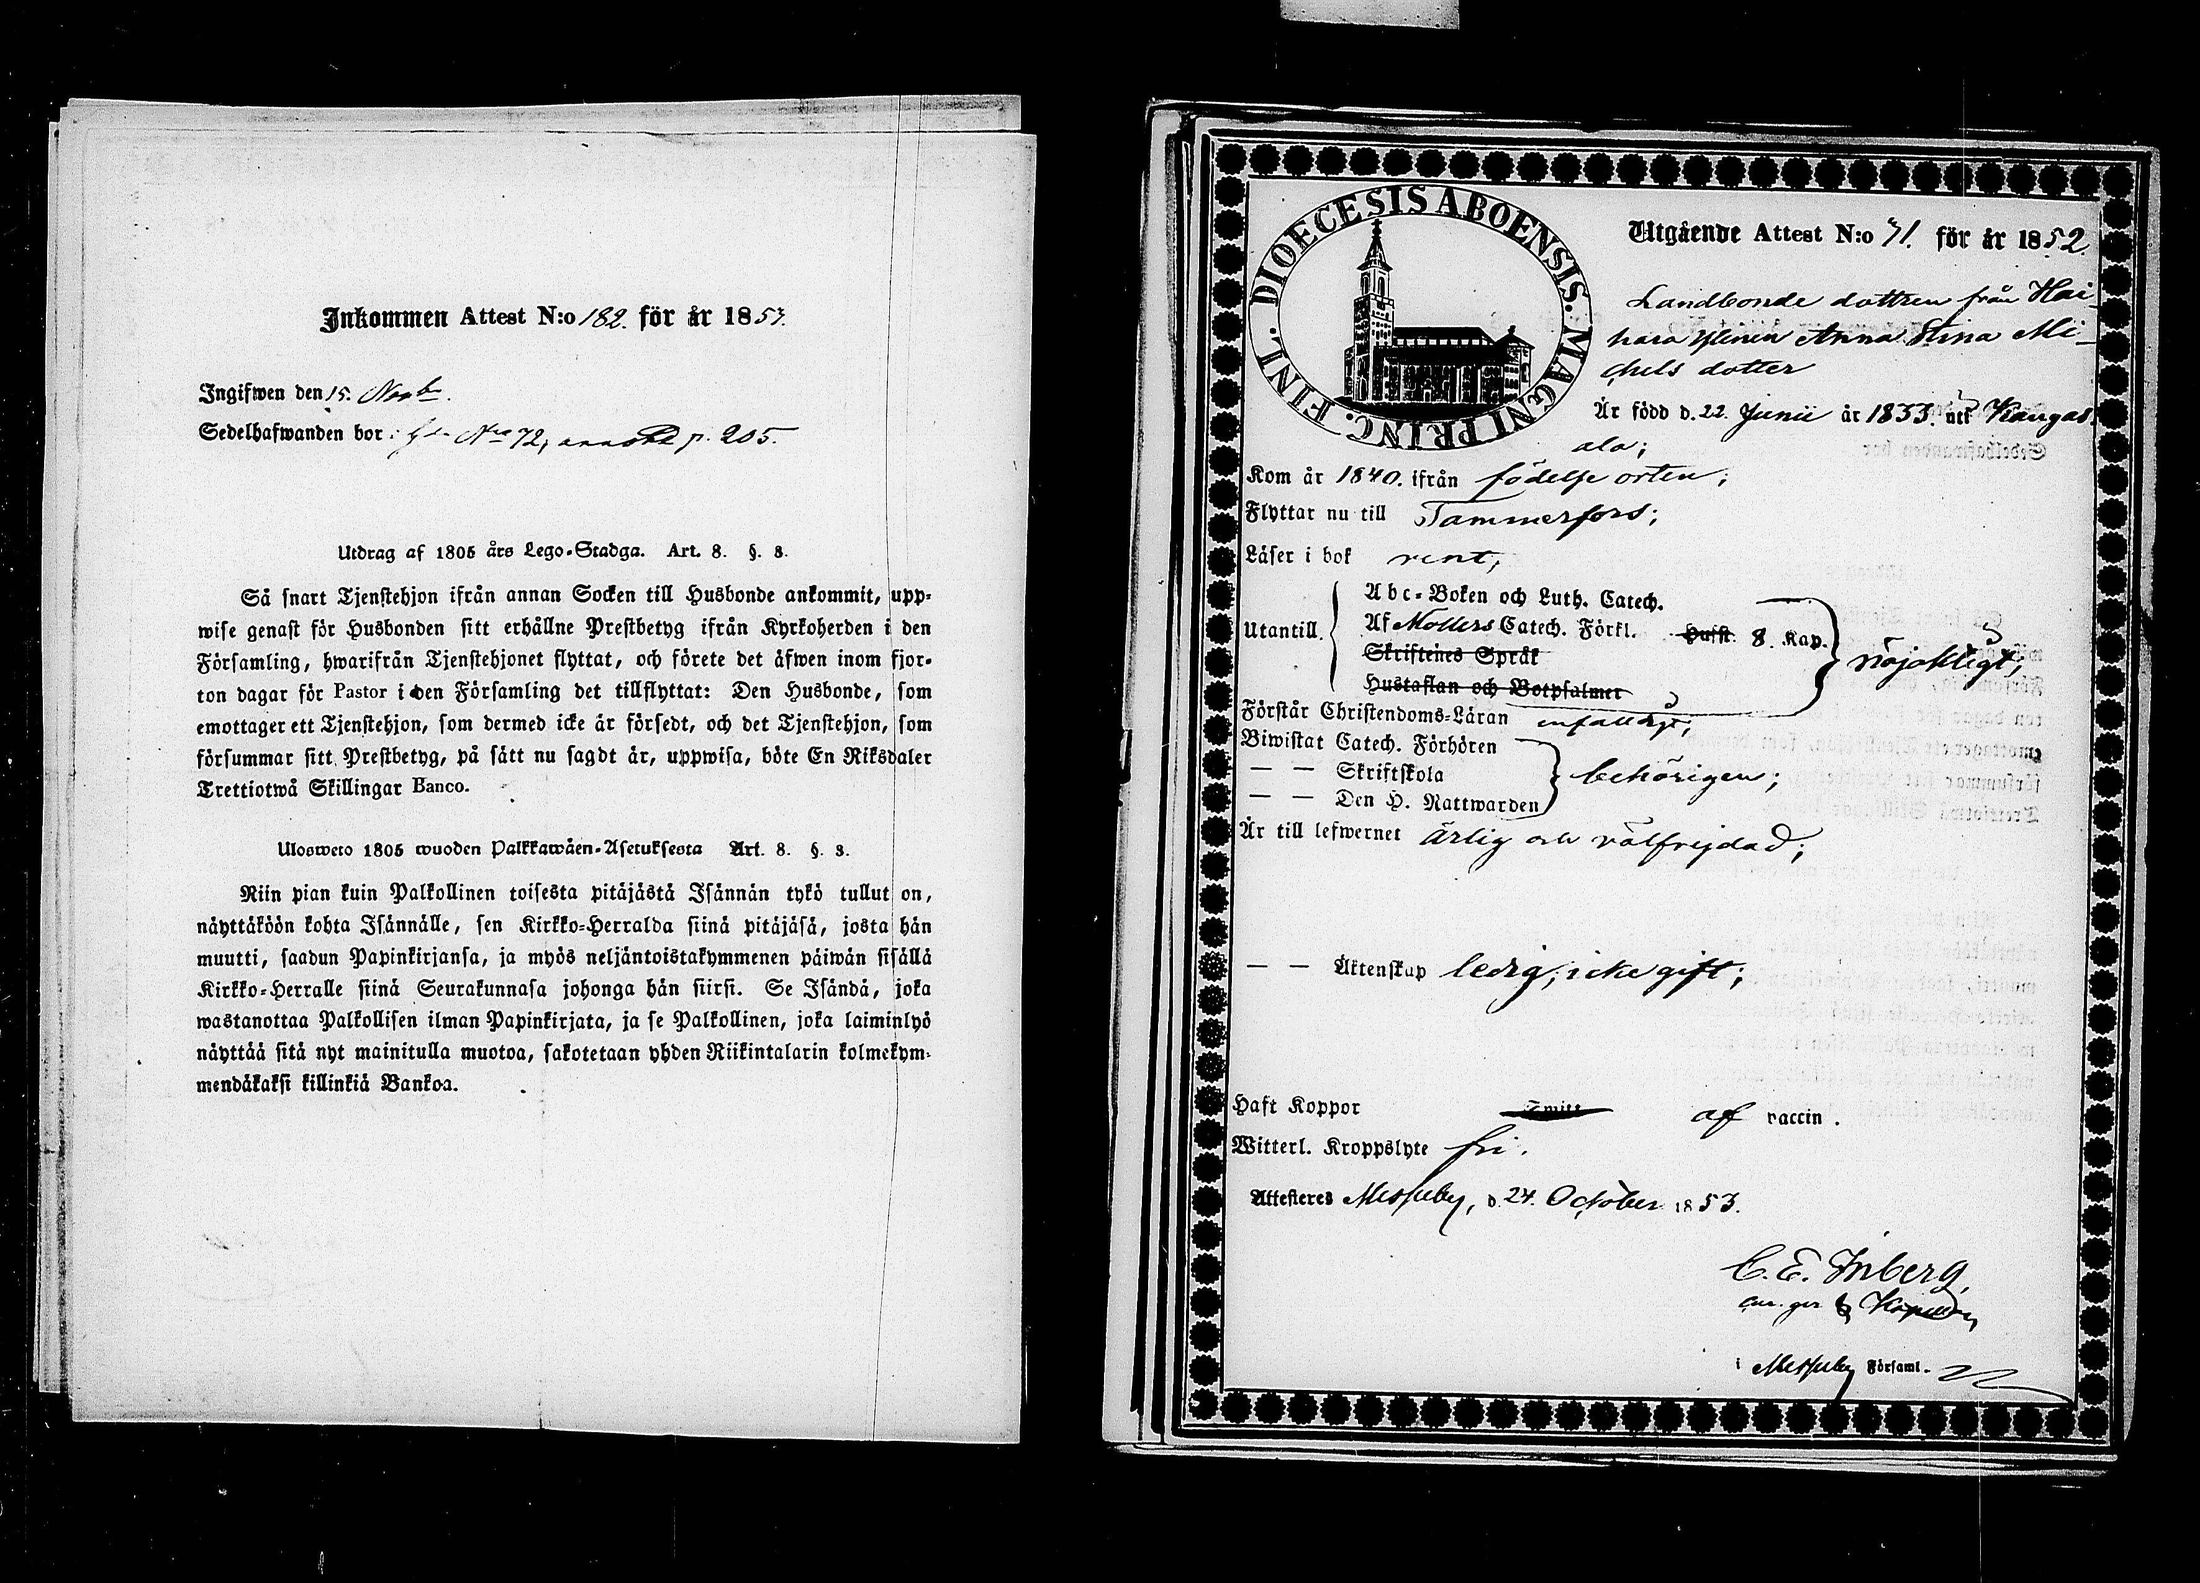 Inkommen Attest N:o 182. för år 1853.
Ingifwen den 15. Novb.
Sedelhafwanden bor: Gdn Nro 72, p. 205.
Utdrag af 1805 års Lego-Stadga. Art. 8. §. 8.
Så snart Tjenstehjon ifrån annan Socken till Husbonde ankommit, upp-
wise genast för Husbonden sitt erhållne Prestbetyg ifrån Kyrkoherden i den
Församling, hwarifrån Tjenstehjonet flyttat, och förete det äfwen inom fjor-
ton dagar för Pastor i den Församling det tillflyttat: Den Husbonde, som
emottager ett Tjenstehjon, som dermed icke är försedt, och det Tjenstehjon, som
försummar sitt Prestbetyg, på sätt nu sagdt är, uppwisa, böte En Riksdaler
Trettiotwå Skillingar Banco.
Ulosweto 1805 wuoden Palkkawäen-Asetuksesta Art. 8. §. 8.
Niin pian kuin Palkollinen toisesta pitäjästä Isännän tykö tullut on,
näyttäköön kohta Isännälle, sen Kirkko-Herralda siinä pitäjäsä, josta hän
muutti, saadun Papinkirjansa, ja myös neljäntoistakymmenen päiwän sisällä
Kirkko-Herralle siinä Seurakunnasa johonga hän siirsi. Se Isändä, joka
wastanottaa Palkollisen ilman Papinkirjata, ja se Palkollinen, joka laiminlyö
näyttää sitä nyt mainitulla muotoa, sakotetaan yhden Riikintalarin kolmekym-
mendäkaksi killinkiä Bankoa.
DIOECESIS ABOENSIS. MAGNI PRINC. FINL.
Utgående Attest N:o 71. för år 1852.
Landbonde dottren från Hai-
hara Ylinen Anna Stina Mi-
chels dotter
Är född d. 22. Junii år 1833. uti Kangas-
ala;
Kom år 1840. ifrån födelse orten;
Flyttar nu till Tammerfors;
Läser i bok rent,
Utantill. Abc-Boken och Luth. Catech.
Af Möllers Catech. Förkl. Husst. 8. Kap.
Skriftenes Språk nöjaktigt;
Hustaflan och Botpsalmer
Förstår Christendoms-Läran enfalldigt;
Biwistat Catech. Förhören
— — Skriftskola behörigen;
— — Den H. Nattwarden
Är till lefwernet ärlig och välfrejdad;
— — Äktenskap ledig, icke gift;
Haft Koppor Smitt af vaccin.
Witterl. Kroppslyte fri.
Attesteres Messuby, d. 24. October 1853.
C. E. Inberg,
i Messuby Församl.